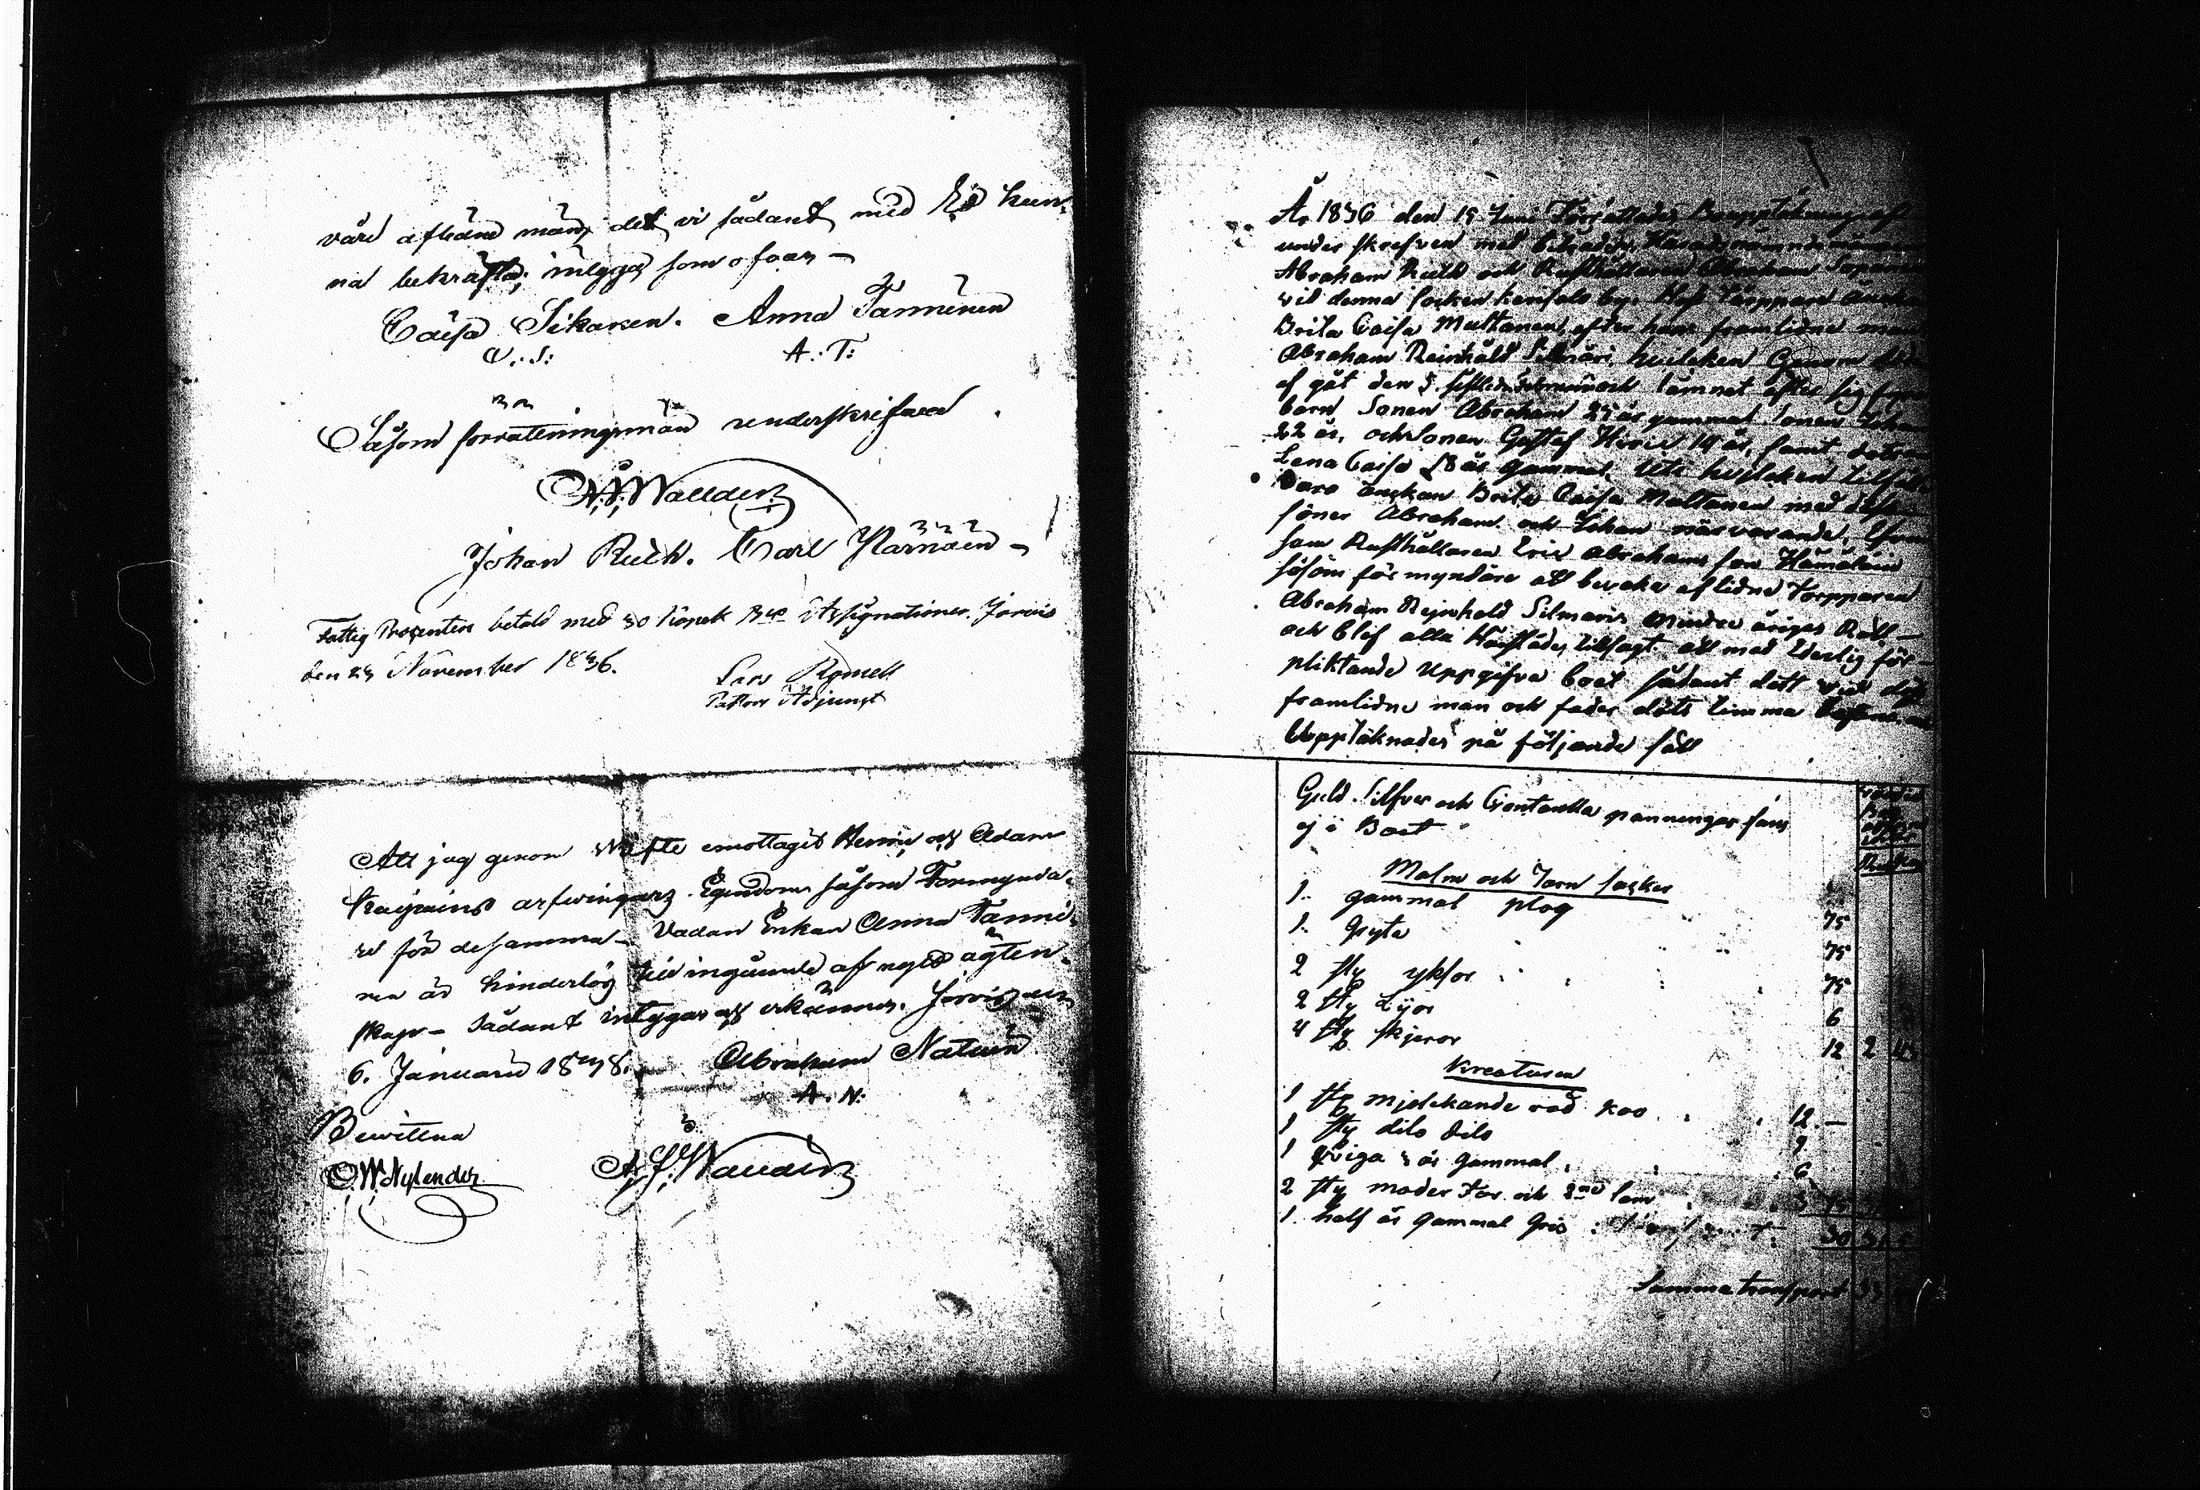 våre aflidne män, det vi sådant med Ed kun-
na bekräfta; intygas som ofvan —
Caisa Sikanen. Anna Tanninen
C. S: A. T:
Såsom förrättningsmän underskrifvad.
A. F. Wallden
Johan Ruth. Carl Närväin —
Fattig Prosenten betald med 30 kopek Bco Assignationer. Jorvis
den 23 November 1836.
Lars
Pastors Adjungt
Att jag genom skifte emottagit Henric och Adam
arfvingars Egendom såsom Förmynda-
re för desamma — Sedan Enkan Anna Tanni-
nen är hinderlös till ingående af nytt ägten-
skap — Sådant intygar och erkännes. Jorvis den
6. Januari 1838. Abraham Natuin
A. N:
Bewittna
C W Nylander A. F. Wallden
År 1836 den 19 Juni Författades Bouppteknings
underskrefven med biträde Häradsnämndemännen
Abraham Ruth och Rusthållaren Abraham
vid denna socken by. Hos Torppare änckan
Brita Caisa Multanen, efter hans framlidne man
Abraham Reinhold Silmäri, hvilcken Genom döden
af gåt den och lämnat efter sig fyra
barn, Sonen Abraham 25 år gammal, Sonen Johan
22 år, och Sonen Gustaf Henric 14 år, samt dotren
Lena Caisa 18 år gammal, Uti hvilcken tilfälle
Vare änckan Brita Caisa Multanen med dess
söner Abraham och Johan närvarande,
sam Rusthållaren Eric Abrahamsson Hämäläin
såsom förmyndare att bevaka aflidne Torpparen
Abraham Rejnhold Silmäris Mindre åriges Rätt —
och blef alla tilsagt att med Ederlig för-
pliktande Uppgifva boet sådant dätt vid
framlidne man och fader döts timma
Upptäknades på följande sätt
Guld. Silfver och Contanta pänningar fans
ej i Boet
Malm och Jarn saker
1. gammal plog 75
1. Gryta 75
2 sty yksor 75
2 sty Lijor 6
4 sty skjeror 12 2 43
Kreaturen
1 sty mjolckande röd koo 12 —
1 sty dito dito 9
1 qviga 3 år gammal 6
2 sty moder Får och 2ne lam 3
1 half år gammal Gris
Summa transport 33